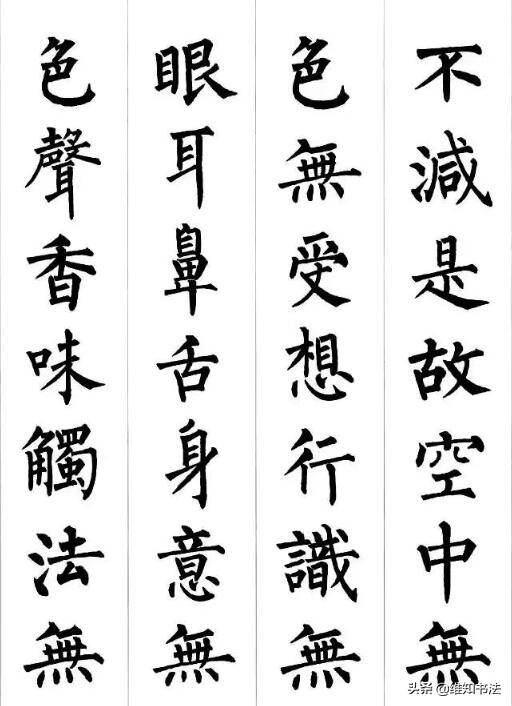 不減是故空中無
色無受想行識無
眼耳鼻舌身意無
色聲香味觸法無
头条 @维知书法